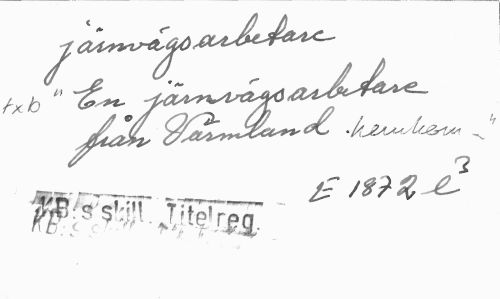 järnvägsarbetare
txb " En järnvägsarbetare
från Värmland. hemkom - "
E 1872 e³
KB:s skill. Titelreg.
KB:s